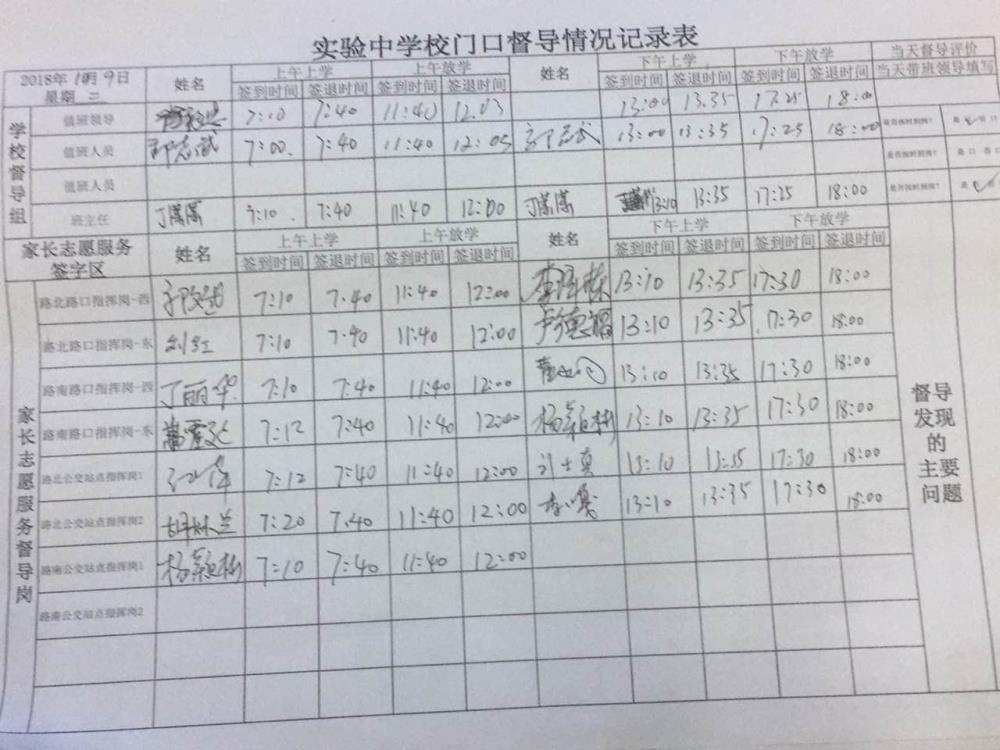 实验中学校门口督导情况记录表
2018年 10月 9日 姓名 上午上学 上午放学 姓名 下午上学 下午放学 当天督导评价
星期 二 签到时间 签退时间 签到时间 签退时间 签到时间 签退时间 签到时间 签退时间 当天带班领导填写
学校督导组
值班领导 7:00 7:40 11:40 12.03 13:00 13.35 17:25 18:00 是否按时到岗? 是 否 口
值班人员 7:00. 7:40 11:40 12:05 13:00 13:35 17:25 18:00 是否按时到岗? 是 口 否 口
值班人员 是否按时到岗? 是 否
班主任 丁潇潇 7:10. 7:40 11:40 12:00 丁潇潇 13:10 13:35 17:25 18:00
家长志愿服务签字区 姓名 上午上学 上午放学 姓名 下午上学 下午放学
签到时间 签退时间 签到时间 签退时间 签到时间 签退时间 签到时间 签退时间
家长志愿服务督导岗
路北路口指挥岗-西 7:10 7.40 11:40 12:00 13:10 13:35 17:30 18:00
路北路口指挥岗-东 刘红 7:10 7.40 11:40 12:00 卢德福 13:10 13:35 17:30 18:00
路南路口指挥岗-西 丁丽华 7:10 7:40 11:40 12:00 13:10 13:35 17:30 18:00
路南路口指挥岗-东 7:12 7:40 11:40 12:00 杨颖彬 13:10 13:35 17:30 18:00
路北公交站点指挥岗1 7:12 7:40 11:40 12:00 13:10 13:35 17:30 18:00
路北公交站点指挥岗2 胡林兰 7:20 7.40 11:40 12:00 13:10 13:35 17:30 18:00
路南公交站点指挥岗1 杨颖彬 7:10 7:40 11:40 12:00
路南公交站点指挥岗2
督导发现的主要问题